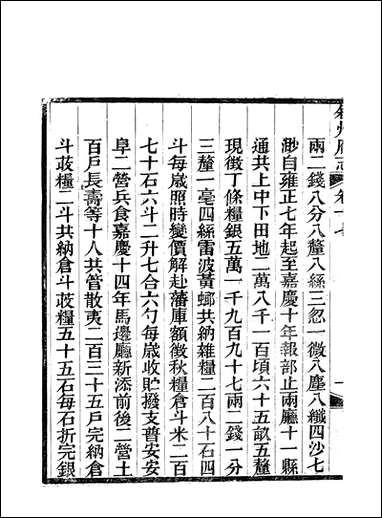 兩二錢八分八釐八絲三忽一微八塵八纖四沙七
渺自雍正七年起至嘉慶十年報部止兩廳十一縣
通共上中下田地二萬八千一百頃六十五畝五釐
現徵丁條糧銀五萬一千九百九十七兩二錢一分
三釐一毫四絲雷波黃螂共納雜糧二百八十石四
斗每歲照時變價解赴藩庫額徵秋糧倉斗米二百
七十石六斗二升七合六勺每歲收貯撥支普安安
阜二營兵食嘉慶十四年馬邊廳新添前後二營土
百戶長壽等十人共管散夷二百三十五戶完納倉
斗蕎糧二斗共納倉斗蕎糧五十五石每石折完銀